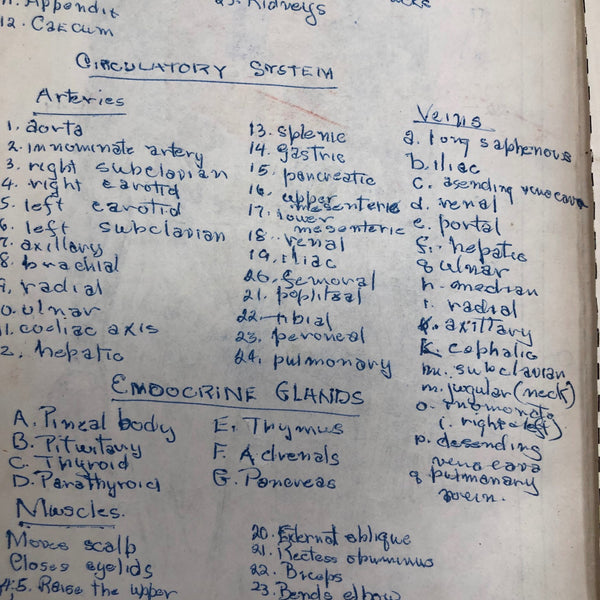 11. Appendix
12. Caecum
25. Kidneys
CIRCULATORY SYSTEM
Arteries
1. aorta
2. innominate artery
3. right subclavian
4. right carotid
5. left carotid
6. left subclavian
7. axillary
8. brachial
9. radial
0. ulnar
11. coeliac axis
2. hepatic
13. splenic
14. gastric
15. pancreatic
16. upper mesenteric
17. lower mesenteric
18. renal
19. iliac
20. femoral
21. popliteal
22. tibial
23. peroneal
24. pulmonary
Veins
a. long saphenous
b. iliac
c. asending vena cava
d. renal
e. portal
f. hepatic
g ulnar
h. median
i. radial
axillary
k. cephalic
subclavian
m. jugular (neck)
o.
(. right & left)
p. desending
vena cava
q pulmonary
vein.
ENDOCRINE GLANDS
A. Pineal body
B. Pituitary
C. Thyroid
D. Parathyroid
E. Thymus
F. Adrenals
G. Pancreas
Muscles.
Moves scalp
Closes eyelids
4.5. Raise the upper
20. External oblique
21. Rectess
22. Biceps
23. Bends elbow